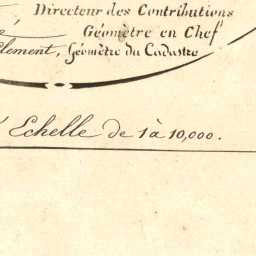 Directeur des Contributions
Géomètre en Chef
Clement, Géomètre du Cadastre
Echelle de 1 à 10,000.